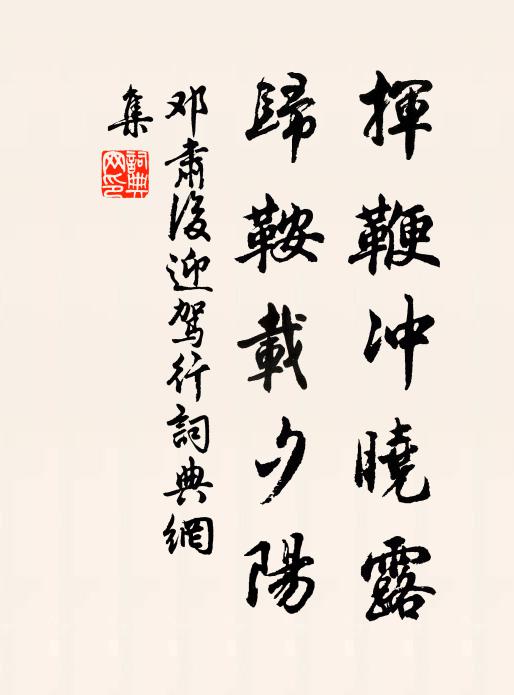 揮鞭冲曉露
歸鞍載夕陽
邓肅後迎駕行詞典網
集
詞典
网印